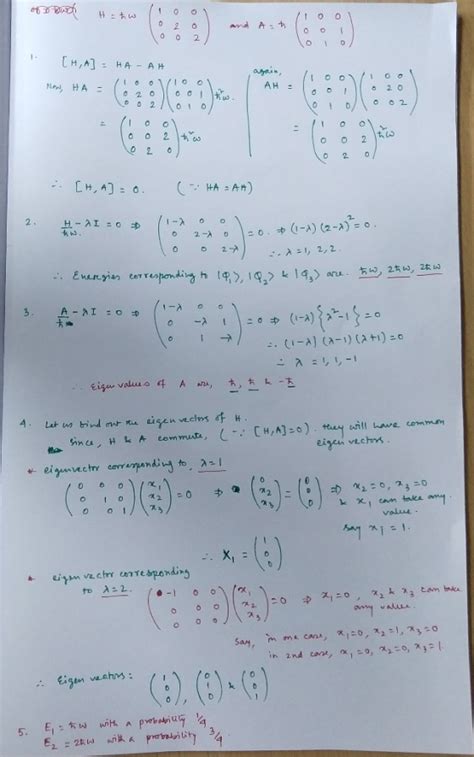 H = ħω ( 1 0 0 / 0 2 0 / 0 0 2 ) and A = ħ ( 1 0 0 / 0 0 1 / 0 1 0 )
1.
[H, A] = HA - AH
Now, HA = ( 1 0 0 / 0 2 0 / 0 0 2 ) ( 1 0 0 / 0 0 1 / 0 1 0 ) ħ²ω.
= ( 1 0 0 / 0 0 2 / 0 2 0 ) ħ²ω
again,
AH = ( 1 0 0 / 0 0 1 / 0 1 0 ) ( 1 0 0 / 0 2 0 / 0 0 2 )
= ( 1 0 0 / 0 0 2 / 0 2 0 ) ħ²ω
∴ [H, A] = 0. (∵ HA = AH)
2. H/ħω - λI = 0 ⇒ ( 1-λ 0 0 / 0 2-λ 0 / 0 0 2-λ ) = 0. ⇒ (1-λ) (2-λ)² = 0.
∴ λ = 1, 2, 2.
∴ Energies corresponding to |φ₁⟩, |φ₂⟩ & |φ₃⟩ are ħω, 2ħω, 2ħω
3. A/ħ - λI = 0 ⇒ ( 1-λ 0 0 / 0 -λ 1 / 0 1 -λ ) = 0 ⇒ (1-λ) {λ² - 1} = 0
∴ (1-λ) (λ-1) (λ+1) = 0
∴ λ = 1, 1, -1
∴ Eigen values of A are, ħ, ħ & -ħ
4. Let us find out the eigen vectors of H.
Since, H & A commute, (∵ [H, A] = 0). they will have common
eigen vectors.
* eigenvector corresponding to, λ = 1
( 0 0 0 / 0 1 0 / 0 0 1 ) ( x₁ / x₂ / x₃ ) = 0 ⇒ ( 0 / x₂ / x₃ ) = ( 0 / 0 / 0 ) ⇒ x₂ = 0, x₃ = 0
& x₁ can take any
value.
Say x₁ = 1.
∴ X₁ = ( 1 / 0 / 0 )
* eigen vector corresponding
to λ = 2. ( -1 0 0 / 0 0 0 / 0 0 0 ) ( x₁ / x₂ / x₃ ) = 0 ⇒ x₁ = 0, x₂ & x₃ can take
any value.
Say, in one case, x₁ = 0, x₂ = 1, x₃ = 0
in 2nd case, x₁ = 0, x₂ = 0, x₃ = 1.
∴ Eigen vectors: ( 1 / 0 / 0 ), ( 0 / 1 / 0 ) & ( 0 / 0 / 1 )
5. E₁ = ħω with a probability 1/4
E₂ = 2ħω with a probability 3/4.